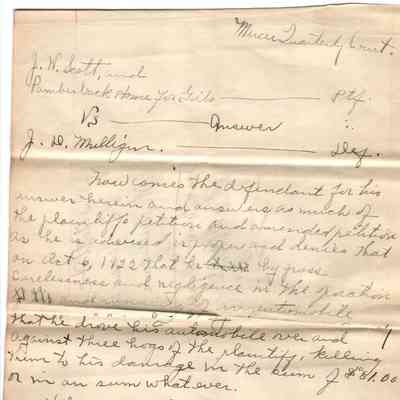 Mercer Quarterly Court.
J. W. Scott, and
Home for Girls Ptf.
VS Answer :
J. D. Milligan. Def.
Now comes the defendant for his
answer herein and answers as much of
the plaintiffs petition and amended petition
as he is advised is proper and denies that
on Oct 6, 1922 that he by gross
carelessness and negligence in the operation
and running of an automobile
that he drove his automobile over and
against three hogs of the plaintiff, killing
them to his damage in the sum of $81.00
or in an sum whatever.